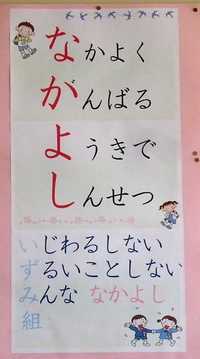 なかよく
がんばる
ようきで
しんせつ
いじわるしない
ずるいことしない
みんな なかよし
組